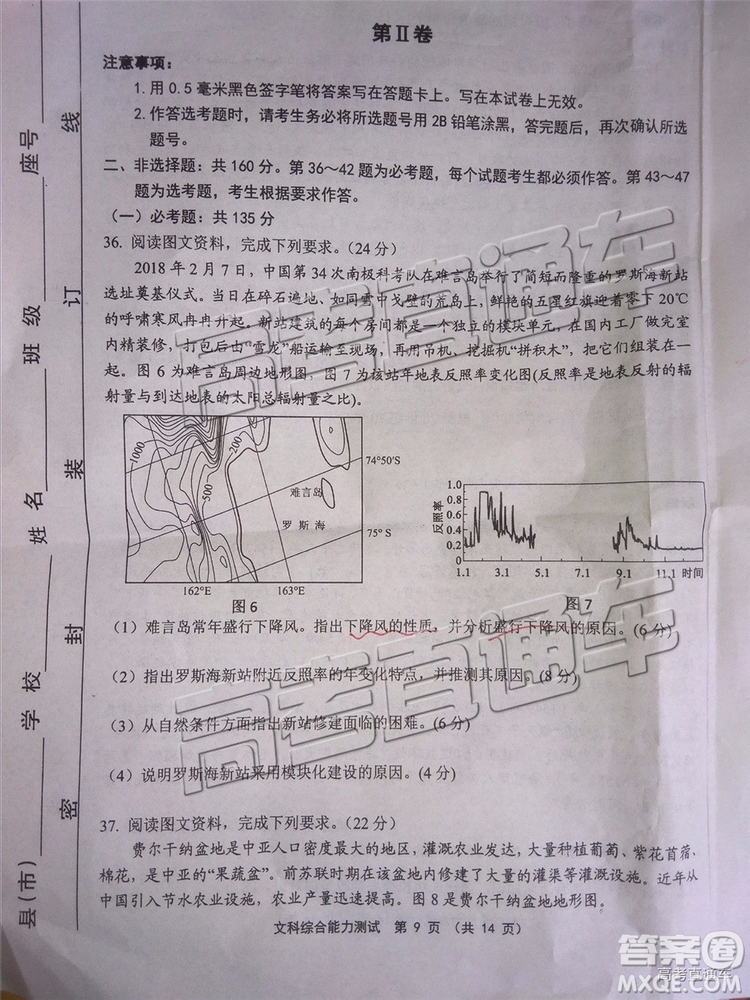 第Ⅱ卷
注意事项：
1.用 0.5 毫米黑色签字笔将答案写在答题卡上。写在本试卷上无效。
2.作答选考题时，请考生务必将所选题号用 2B 铅笔涂黑，答完题后，再次确认所选
题号。
二、非选择题：共 160 分。第 36～42 题为必考题，每个试题考生都必须作答。第 43～47
题为选考题，考生根据要求作答。
(一）必考题：共 135 分
36. 阅读图文资料，完成下列要求。（24 分）
2018 年 2 月 7 日，中国第 34 次南极科考队在难言岛举行了简短而隆重的罗斯海新站
选址奠基仪式。当日在碎石遍地、如同雪中戈壁的荒岛上，鲜艳的五星红旗迎着零下 20℃
的呼啸寒风冉冉升起。新站建筑的每个房间都是一个独立的模块单元，在国内工厂做完室
内精装修，打包后由“雪龙”船运输至现场，再用吊机、挖掘机“拼积木”，把它们组装在一
起。图 6 为难言岛周边地形图，图 7 为该站年地表反照率变化图(反照率是地表反射的辐
射量与到达地表的太阳总辐射量之比)。
1000
200
500
74°50'S
难言岛
罗斯海
75° S
162°E
163°E
图 6
反照率
1.0
0.8
0.6
0.4
0.2
0
1.1 3.1 5.1 7.1 9.1 11.1 时间
图 7
(1）难言岛常年盛行下降风。指出下降风的性质，并分析盛行下降风的原因。(6 分)
(2）指出罗斯海新站附近反照率的年变化特点，并推测其原因。(8 分)
(3）从自然条件方面指出新站修建面临的困难。(6 分)
(4）说明罗斯海新站采用模块化建设的原因。(4 分)
37. 阅读图文资料，完成下列要求。（22 分）
费尔干纳盆地是中亚人口密度最大的地区，灌溉农业发达，大量种植葡萄、紫花苜蓿、
棉花，是中亚的“果蔬盆”。前苏联时期在该盆地内修建了大量的灌渠等灌溉工程。近年从
中国引入节水农业设施，农业产量迅速提高。图 8 是费尔干纳盆地地形图。
文科综合能力测试 第 9 页 （共 14 页）
县(市) 学校 姓名 班级 座号
密 封 装 订 线
高考直通车
高考直通车
高考直通车
答案卷
MXQE.COM